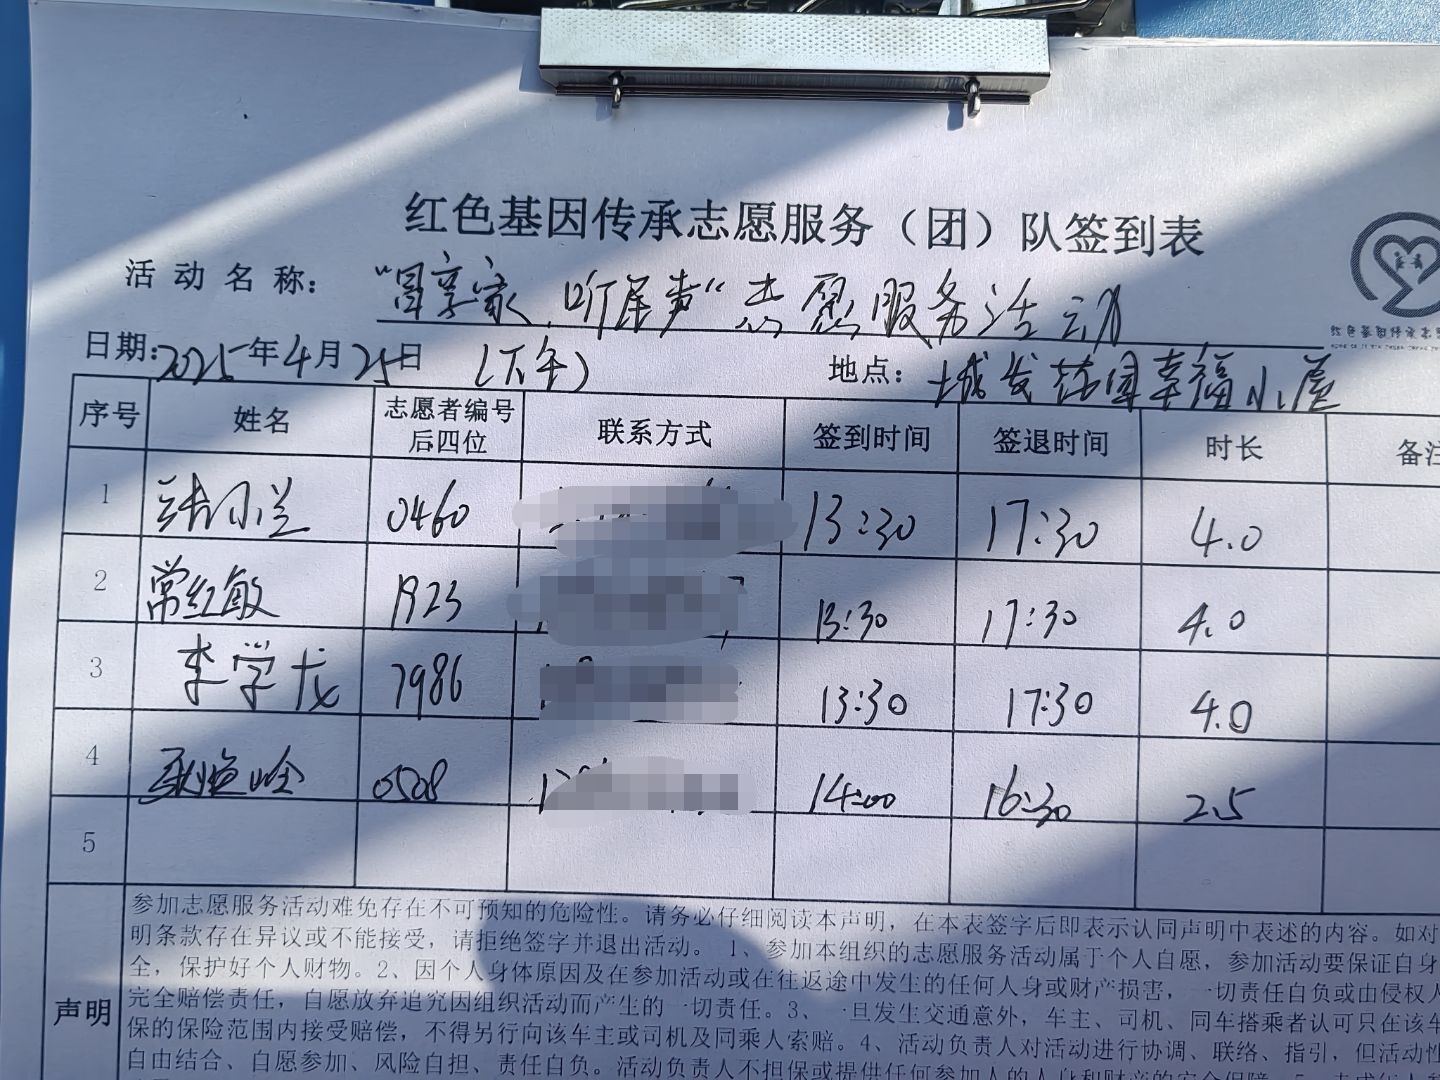 红色基因传承志愿服务（团）队签到表
活动名称： “冒享家，听屋声“志愿服务活动
日期：2025年4月25日 （下午） 地点：城发花园幸福小屋
序号 姓名 志愿者编号后四位 联系方式 签到时间 签退时间 时长 备注
1 0460 13:30 17:30 4.0
2 常红敏 1923 13:30 17:30 4.0
3 李学龙 7986 13:30 17:30 4.0
4 0508 14:00 16:30 2.5
5
声明
参加志愿服务活动难免存在不可预知的危险性。请务必仔细阅读本声明，在本表签字后即表示认同声明中表述的内容。如对
明条款存在异议或不能接受，请拒绝签字并退出活动。 1、参加本组织的志愿服务活动属于个人自愿，参加活动要保证自身
全，保护好个人财物。2、因个人身体原因及在参加活动或在往返途中发生的任何人身或财产损害，一切责任自负或由侵权人
完全赔偿责任，自愿放弃追究因组织活动而产生的一切责任。3、一旦发生交通意外，车主、司机、同车搭乘者认可只在该车
保的保险范围内接受赔偿，不得另行向该车主或司机及同乘人索赔。4、活动负责人对活动进行协调、联络、指引，但活动性
自由结合、自愿参加、风险自担、责任自负。活动负责人不担保或提供任何参加人的人身和财产的安全保障。5、未成年人参